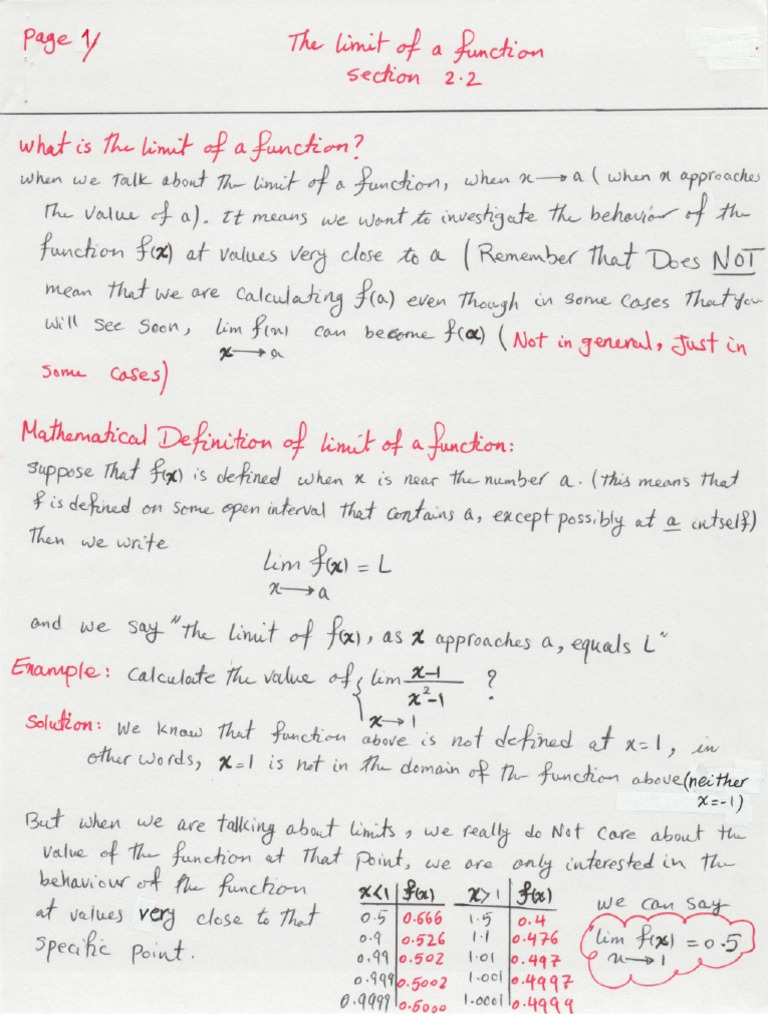 Page 1/
The limit of a function
section 2.2
What is the limit of a function?
when we talk about the limit of a function, when x → a ( when x approaches
the value of a). It means we want to investigate the behavior of the
function f(x) at values very close to a ( Remember that Does NOT
mean that we are calculating f(a) even though in some cases that you
will see soon, lim f(x) can become f(a) ( Not in general, Just in
x → a
some cases)
Mathematical Definition of limit of a function:
suppose that f(x) is defined when x is near the number a. (this means that
f is defined on some open interval that contains a, except possibly at a intself)
Then we write
lim f(x) = L
x → a
and we say "the limit of f(x), as x approaches a, equals L"
Example: calculate the value of { lim x-1 / x²-1 ?
x → 1
Solution: We know that function above is not defined at x=1, in
other words, x=1 is not in the domain of the function above (neither
x=-1)
But when we are talking about limits, we really do Not care about the
value of the function at that point, we are only interested in the
behaviour of the function
at values very close to that
specific point.
x<1 f(x) x>1 f(x)
0.5 0.666 1.5 0.4
0.9 0.526 1.1 0.476
0.99 0.502 1.01 0.497
0.999 0.5002 1.001 0.4997
0.9999 0.5000 1.0001 0.4999
we can say
lim f(x) = 0.5
x → 1